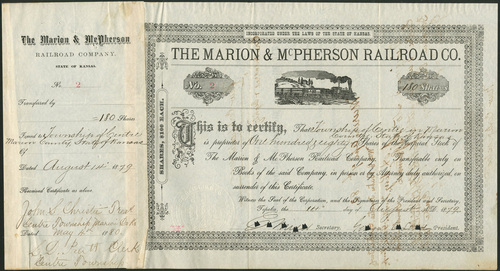 The Marion & McPherson
RAILROAD COMPANY.
STATE OF KANSAS.
No. 2
Transferred by
180 Shares
Issued to Township of Centre
Marion County State of Kansas
Dated August 1st 1879
Received Certificate as above.
John S. Christie Trust
Centre Township
May 6th 1880
Clerk
Centre Town
INCORPORATED UNDER THE LAWS OF THE STATE OF KANSAS
THE MARION & McPHERSON RAILROAD CO.
No. 2
180 Shares
SHARES, $100 EACH.
This is to certify, That Township of Centre in Marion
County State of Kansas
is proprietor of One hundred eighty Shares of the Capital Stock of
The Marion & McPherson Railroad Company, Transferable only on
Books of the said Company, in person or by Agency duly authorized, on
surrender of this Certificate.
Witness the Seal of the Corporation, and the Signatures of the President and Secretary.
Topeka, the day of August 1879
Secretary. President.